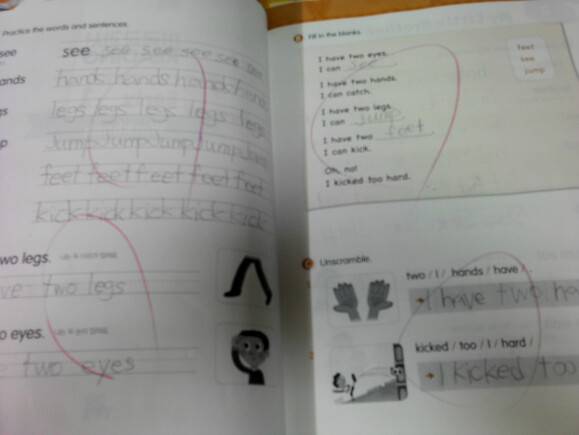 Practice the words and sentences.
see see see see see see see
hands hands hands hands
legs legs legs legs
Jump Jump Jump Jump Jump
feet feet feet feet feet
kick kick kick kick kick
two legs.
two legs
eyes.
two eyes
B Fill in the blanks.
feet
see
jump
I have two eyes.
I can see.
I have two hands.
I can catch.
I have two legs.
I can jump.
I have two feet.
I can kick.
Oh, no!
I kicked too hard.
C Unscramble.
two / I / hands / have / .
I have two
kicked / too / I / hard / .
I kicked too